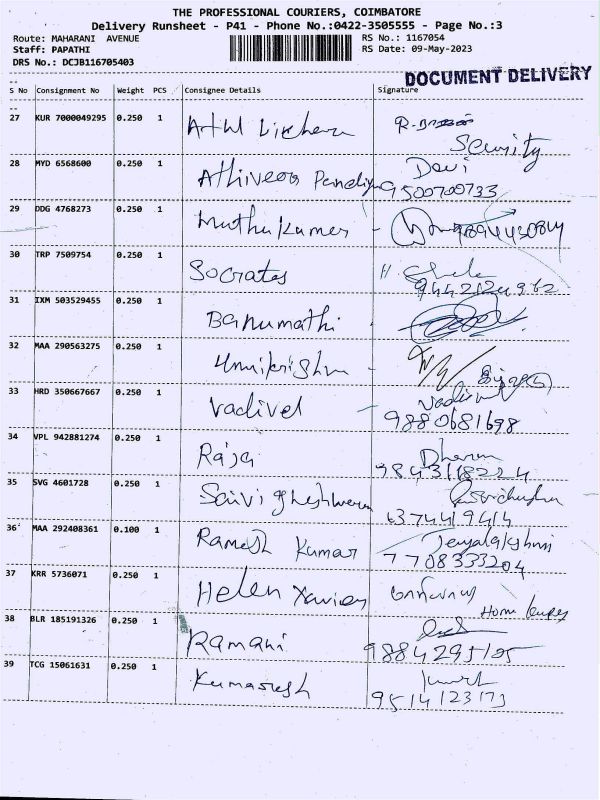 THE PROFESSIONAL COURIERS, COIMBATORE
Delivery Runsheet - P41 - Phone No.:0422-3505555 - Page No.:3
Route: MAHARANI AVENUE RS No.: 1167054
Staff: PAPATHI RS Date: 09-May-2023
DRS No.: DCJB116705403
DOCUMENT DELIVERY
S No Consignment No Weight PCS Consignee Details Signature
27 KUR 7000049295 0.250 1
Security
28 MYD 6568600 0.250 1 Athiveera Pandiyan Devi
9500700733
29 DDG 4768273 0.250 1 Muthukumar - 9894430844
30 TRP 7509754 0.250 1 Socrates
9442124962
31 IXM 503529455 0.250 1 Banumathi
32 MAA 290563275 0.250 1 Unnikrishnan
33 HRD 350667667 0.250 1 Vadivel
9880681698
34 VPL 942881274 0.250 1 Raja Dharun
9843118224
35 SVG 4601728 0.250 1
6374419414
36 MAA 292408361 0.100 1 Ramesh Kumar Jeyalakshmi
7708333204
37 KRR 5736071 0.250 1 Helen Xavier
38 BLR 185191326 0.250 1 Ramani
9884295125
39 TCG 15061631 0.250 1 Kumaresh
9514123173